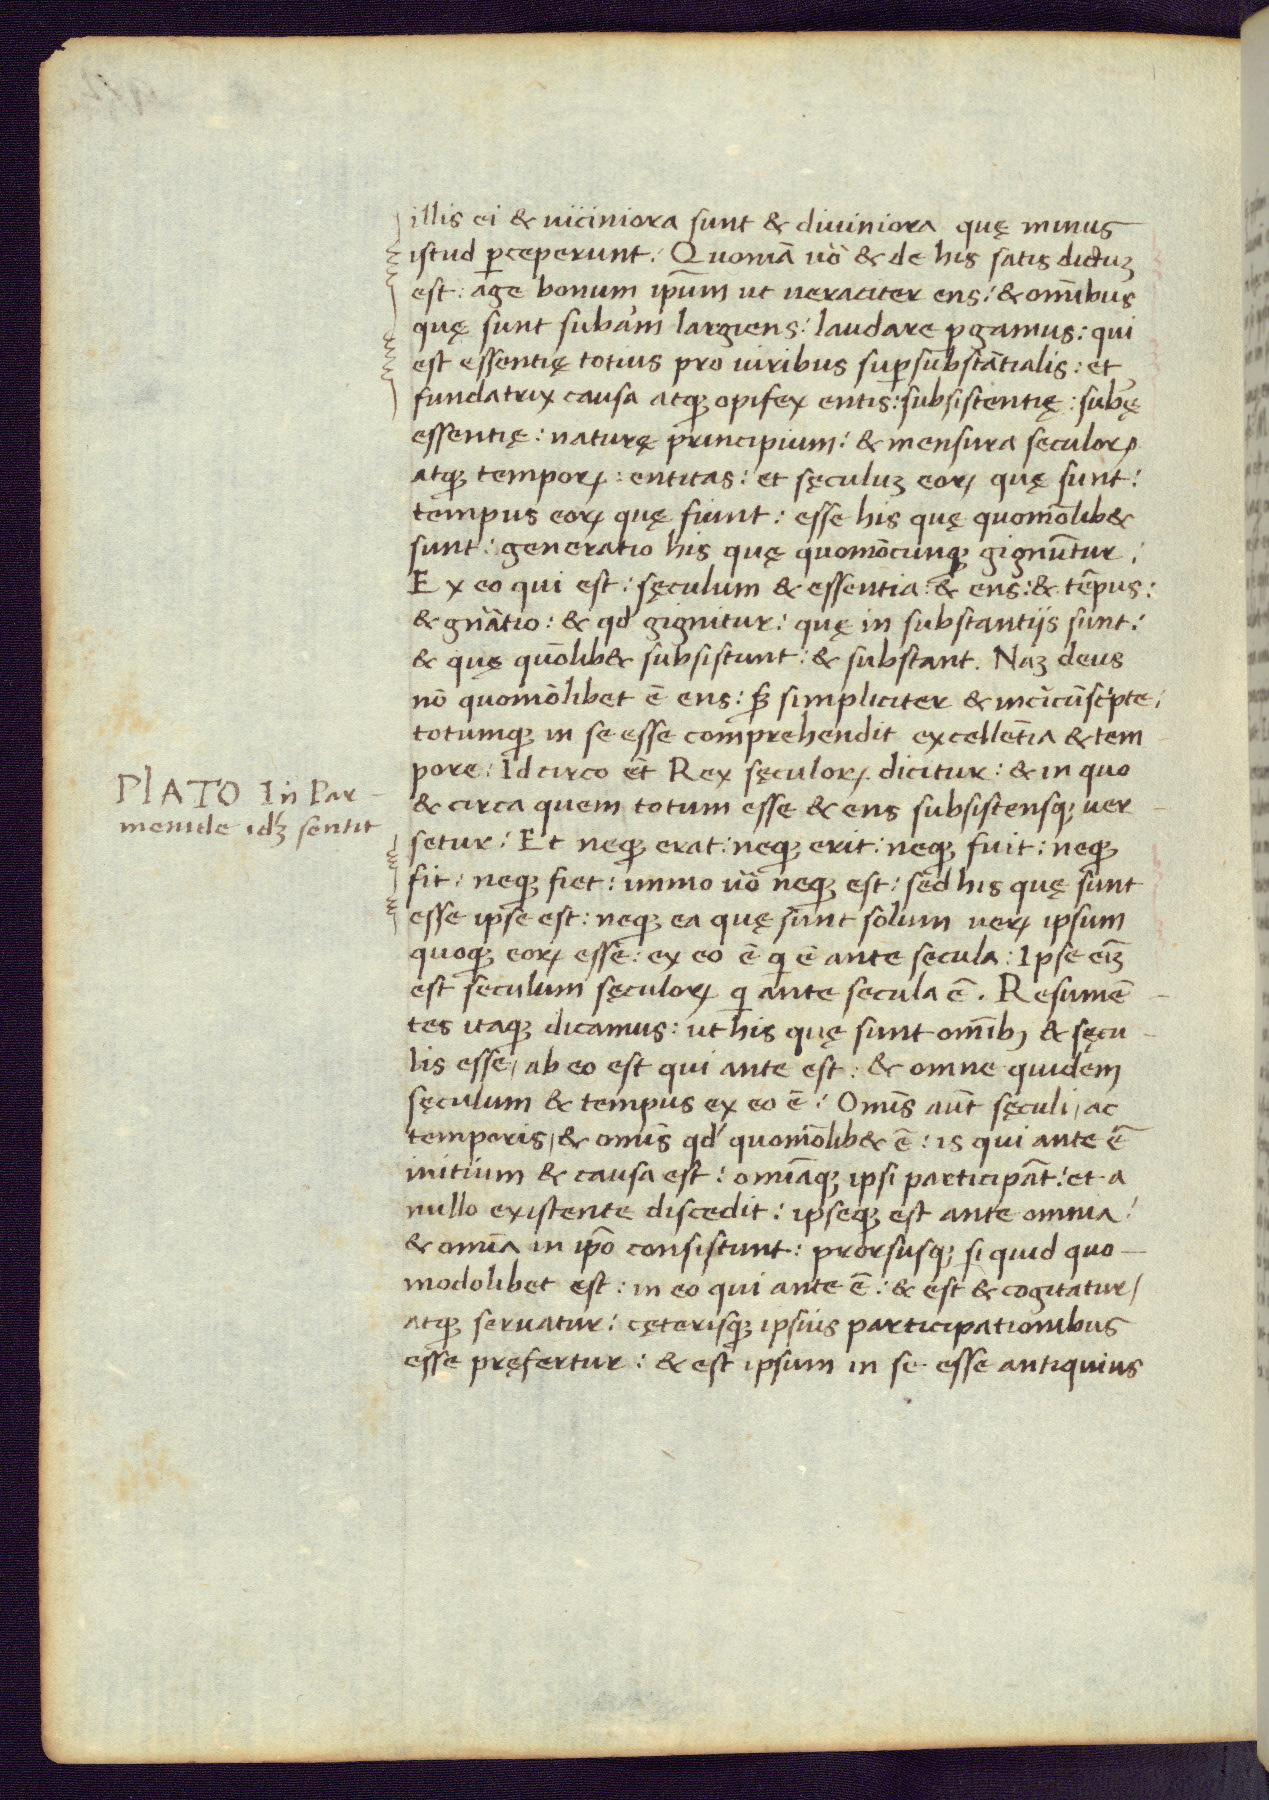 illis ei & uiciniora sunt & diuiniora quę minus
istud ꝑceperunt. Quoniā u̔o & de his satis dictuꝫ
est: age bonum ip̄um ut ueraciter ens: & om̄ibus
quę sunt subām largiens: laudare ꝑgamus: qui
est essentię totius pro uiribus suꝑsubstātialis: et
fundatrix causa atqꝫ opifex entis: subsistentię: subę̄
essentię: naturę principium: & mensura seculoꝝ
atqꝫ tempoꝝ: entitas: et sęculuꝫ eoꝝ quę sunt:
tempus eoꝝ quę fiunt: esse his quę quomōlib&
sunt: generatio his quę quomōcunqꝫ gignūtur:
Ex eo qui est: sęculum & essentia: & ens: & tēpus:
& gn̄atio: & qd̄ gignitur: quę in substantijs sunt:
& quę quōlib& subsistunt: & substant. Naꝫ deus
nō quomōlibet ē ens: sꝫ simpliciter & incircūscpte:
totumqꝫ in se esse comprehendit excellētia & tem
pore: Idcirco et̄ Rex sęculoꝝ dicitur: & in quo
PlATO In Par-
menide idꝫ sentit
& circa quem totum esse & ens subsistensqꝫ uer-
setur: Et neqꝫ erat: neqꝫ erit: neqꝫ fuit: neqꝫ
fit: neqꝫ fiet: immo u̔o neqꝫ est: sed his quę sunt
esse ipse est: neqꝫ ea quę sunt solum ueꝝ ipsum
quoqꝫ eoꝝ esse: ex eo ē q ē ante secula: Ipse eīꝫ
est seculum sęculoꝝ q ante secula ē. Resumē-
tes itaqꝫ dicamus: ut his quę sunt om̄ibꝫ & sęcu-
lis esse, ab eo est qui ante est: & omne quidem
sęculum & tempus ex eo ē: Om̄is aūt sęculi, ac
temporis, & om̄is qd̄ quomōlib& ē: is qui ante ē
initium & causa est: omīaqꝫ ipsi participāt: et a
nullo existente discedit: ipseqꝫ est ante omnia:
& omīa in ip̄o consistunt: prorsusqꝫ si quid quo-
modolibet est: in eo qui ante ē: & est & cogitatur,
atqꝫ seruatur: cęterisqꝫ ipsius participationibus
esse pręfertur: & est ipsum in se esse antiquius